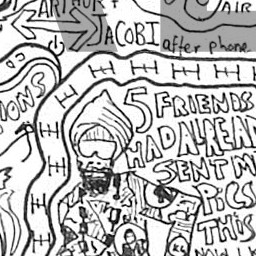 ARTHUR +
JACOBI
AIR
after phone
IONS
5 FRIENDS
HAD ALREADY
SENT M
PiCS
THiS